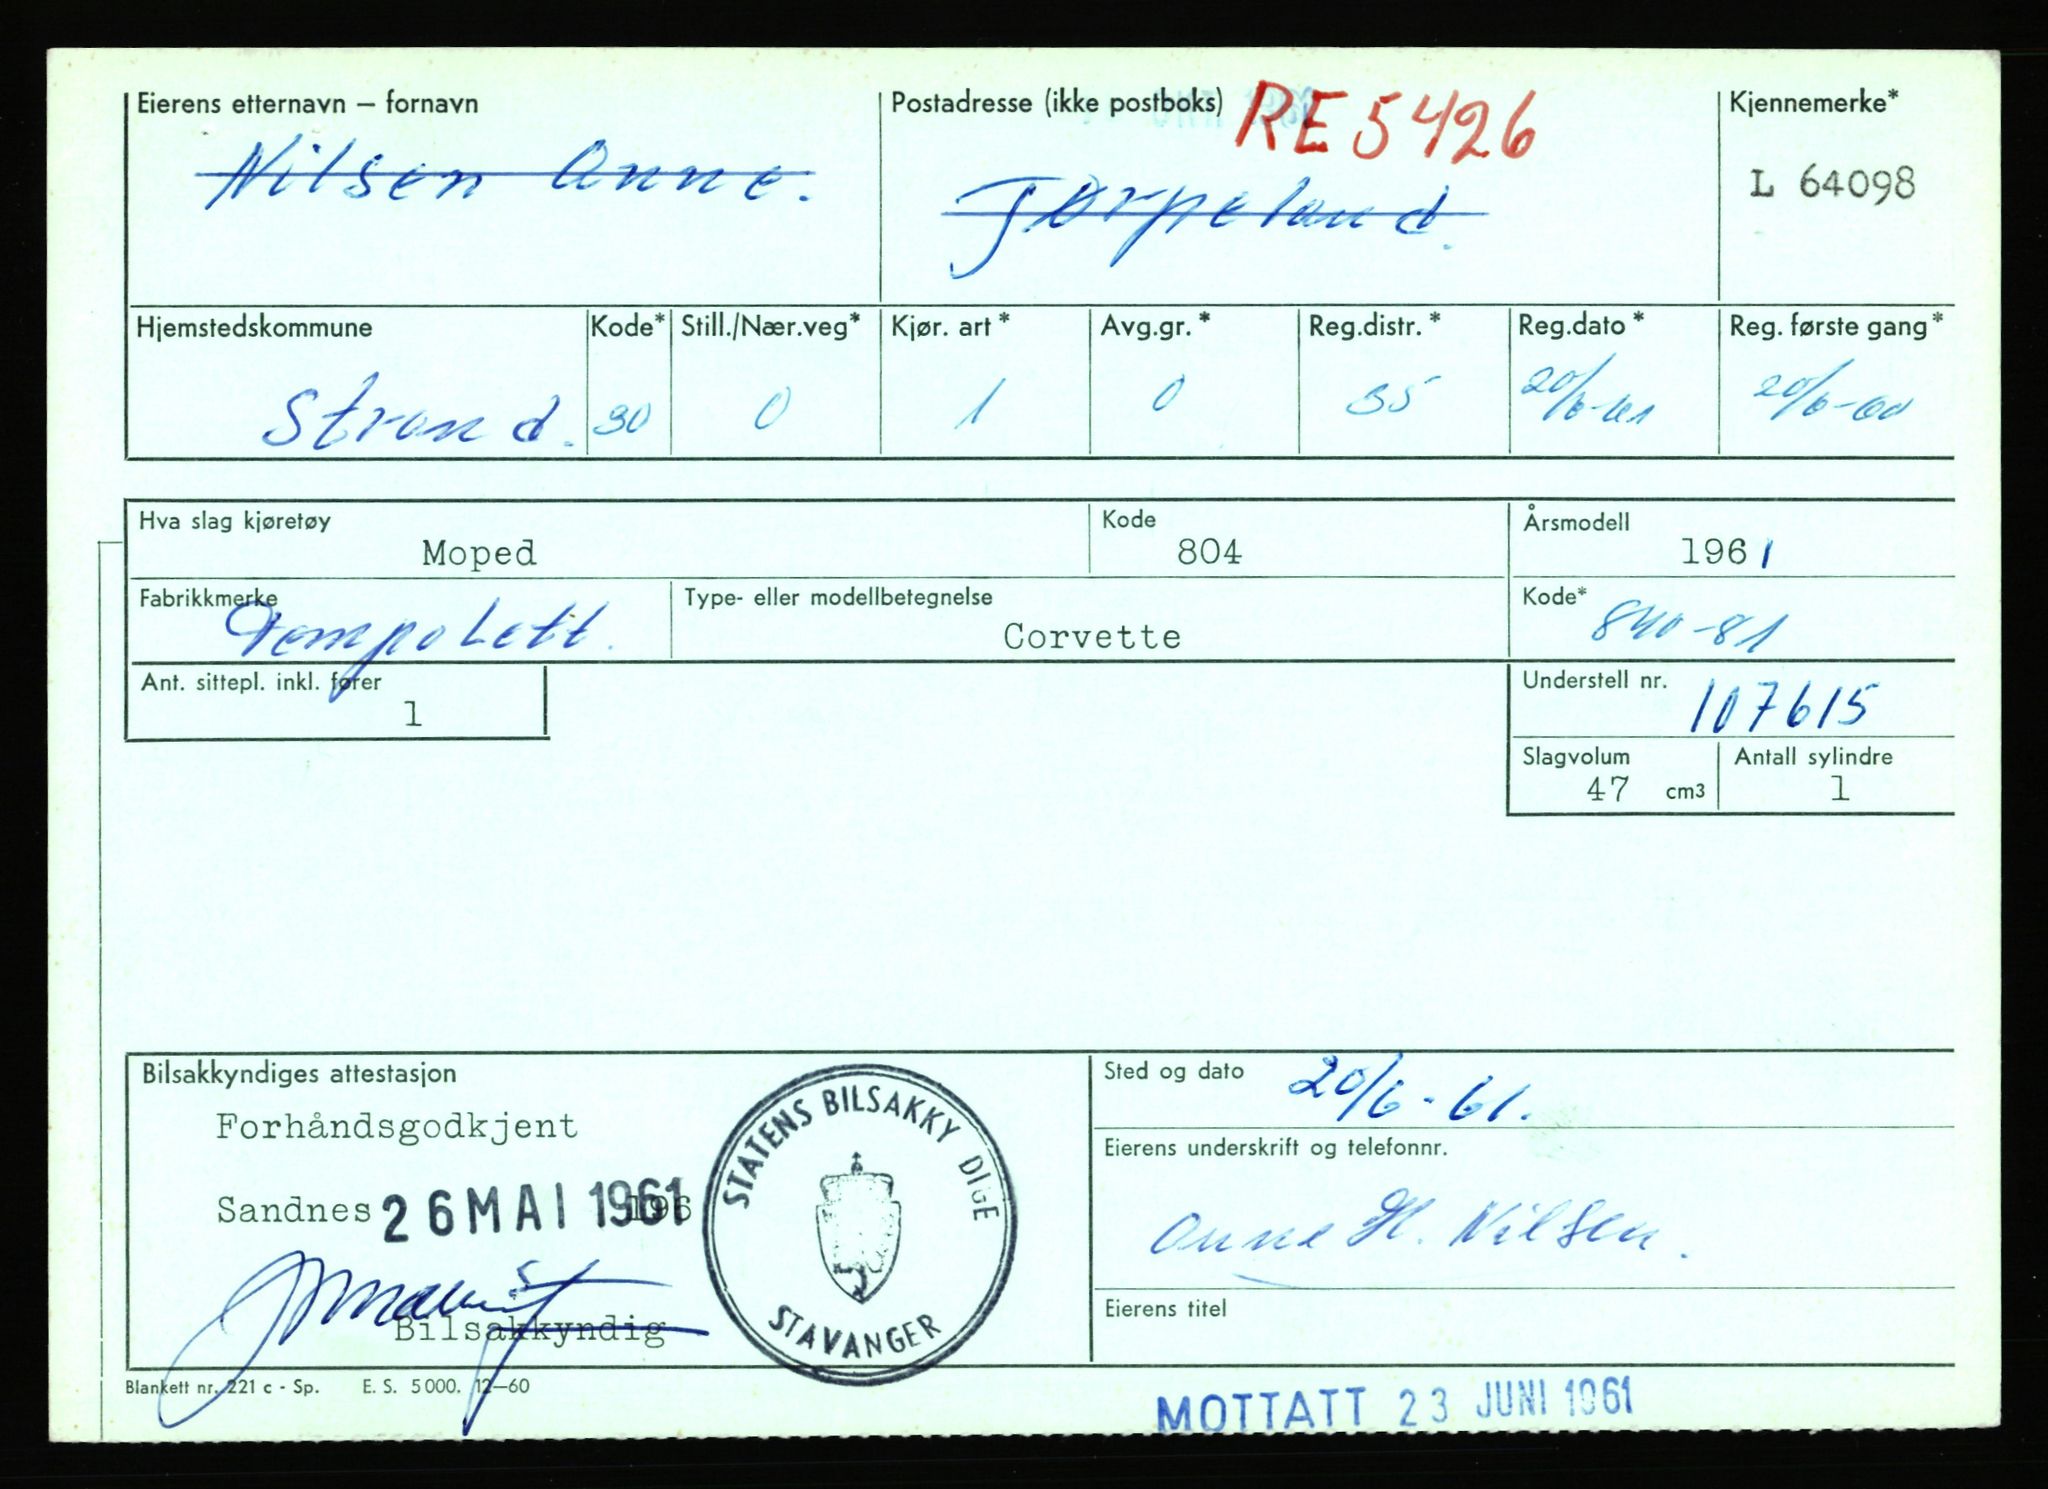 Eierens etternavn – fornavn
Nilsen Anne.
Postadresse (ikke postboks)
RE 5426
Tørpeland.
Kjennemerke*
L 64098
Hjemstedskommune
Strand.
Kode*
30
Still./Nær.veg*
0
Kjør. art*
1
Avg.gr.*
0
Reg.distr.*
35
Reg.dato*
20/6-61
Reg. første gang*
20/6-60
Hva slag kjøretøy
Moped
Kode
804
Årsmodell
1961
Fabrikkmerke
Tempo Lett.
Type- eller modellbetegnelse
Corvette
Kode*
840-81
Ant. sittepl. inkl. fører
1
Understell nr.
107615
Slagvolum
47 cm3
Antall sylindre
1
Bilsakkyndiges attestasjon
Forhåndsgodkjent
Sandnes 26 MAI 1961 196
Bilsakkyndig
STATENS BILSAKKY DIGE
STAVANGER
Sted og dato
20/6-61.
Eierens underskrift og telefonnr.
Anne H. Nilsen.
Eierens titel
Blankett nr. 221 c - Sp. E. S. 5000. 12—60
MOTTATT 23 JUNI 1961